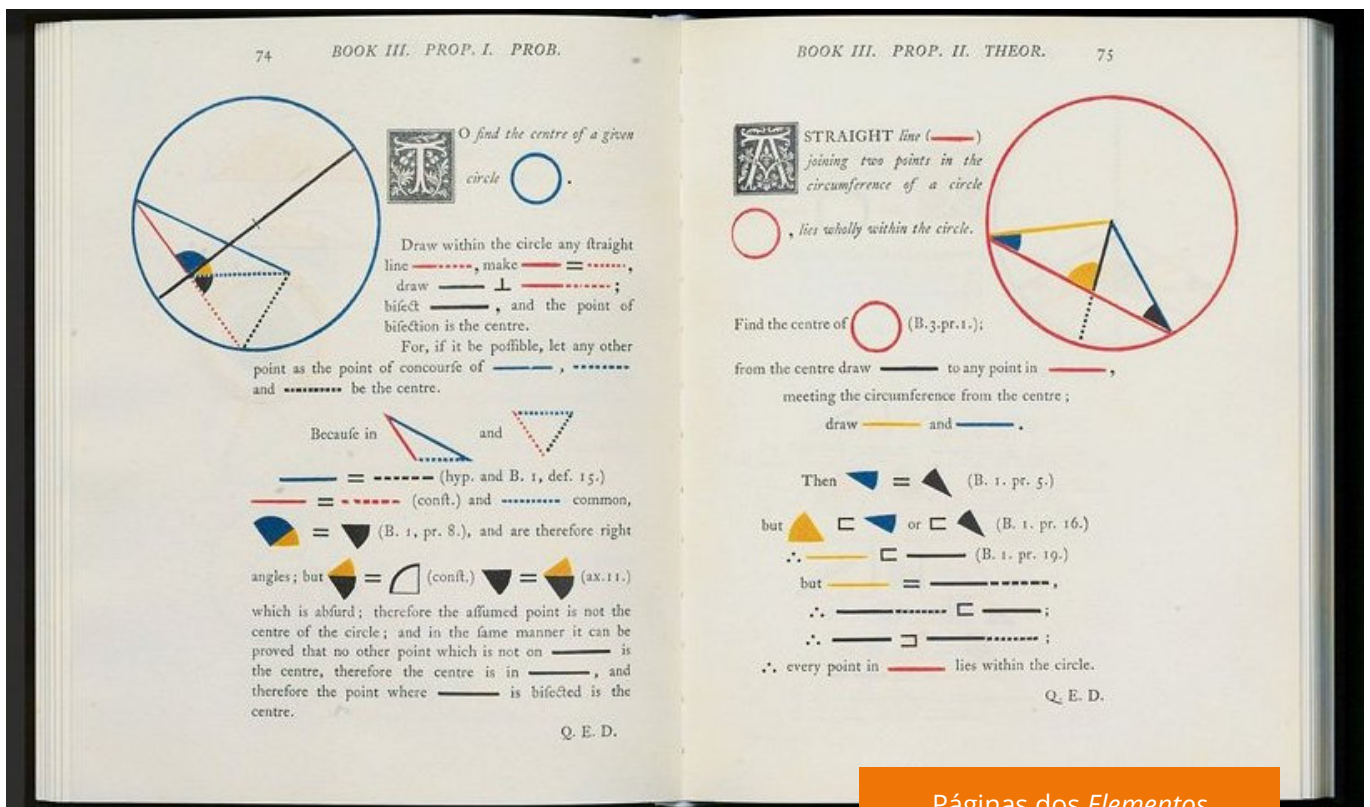 74 BOOK III. PROP. I. PROB.
TO find the centre of a given
circle .
Draw within the circle any ſtraight
line , make = ,
draw ⊥ ;
biſect , and the point of
biſection is the centre.
For, if it be poſſible, let any other
point as the point of concourſe of ,
and be the centre.
Becauſe in and
= (hyp. and B. 1, def. 15.)
= (conſt.) and common,
= (B. 1, pr. 8.), and are therefore right
angles; but = (conſt.) = (ax.11.)
which is abſurd; therefore the aſſumed point is not the
centre of the circle; and in the ſame manner it can be
proved that no other point which is not on is
the centre, therefore the centre is in , and
therefore the point where is biſected is the
centre.
Q. E. D.
BOOK III. PROP. II. THEOR. 75
A STRAIGHT line ( )
joining two points in the
circumference of a circle
, lies wholly within the circle.
Find the centre of (B.3.pr.1.);
from the centre draw to any point in ,
meeting the circumference from the centre ;
draw and .
Then = (B. 1. pr. 5.)
but ⊏ or ⊏ (B. 1. pr. 16.)
∴ ⊏ (B. 1. pr. 19.)
but = ,
∴ ⊏ ;
∴ ⊐ ;
∴ every point in lies within the circle.
Q. E. D.
Páginas dos Elementos